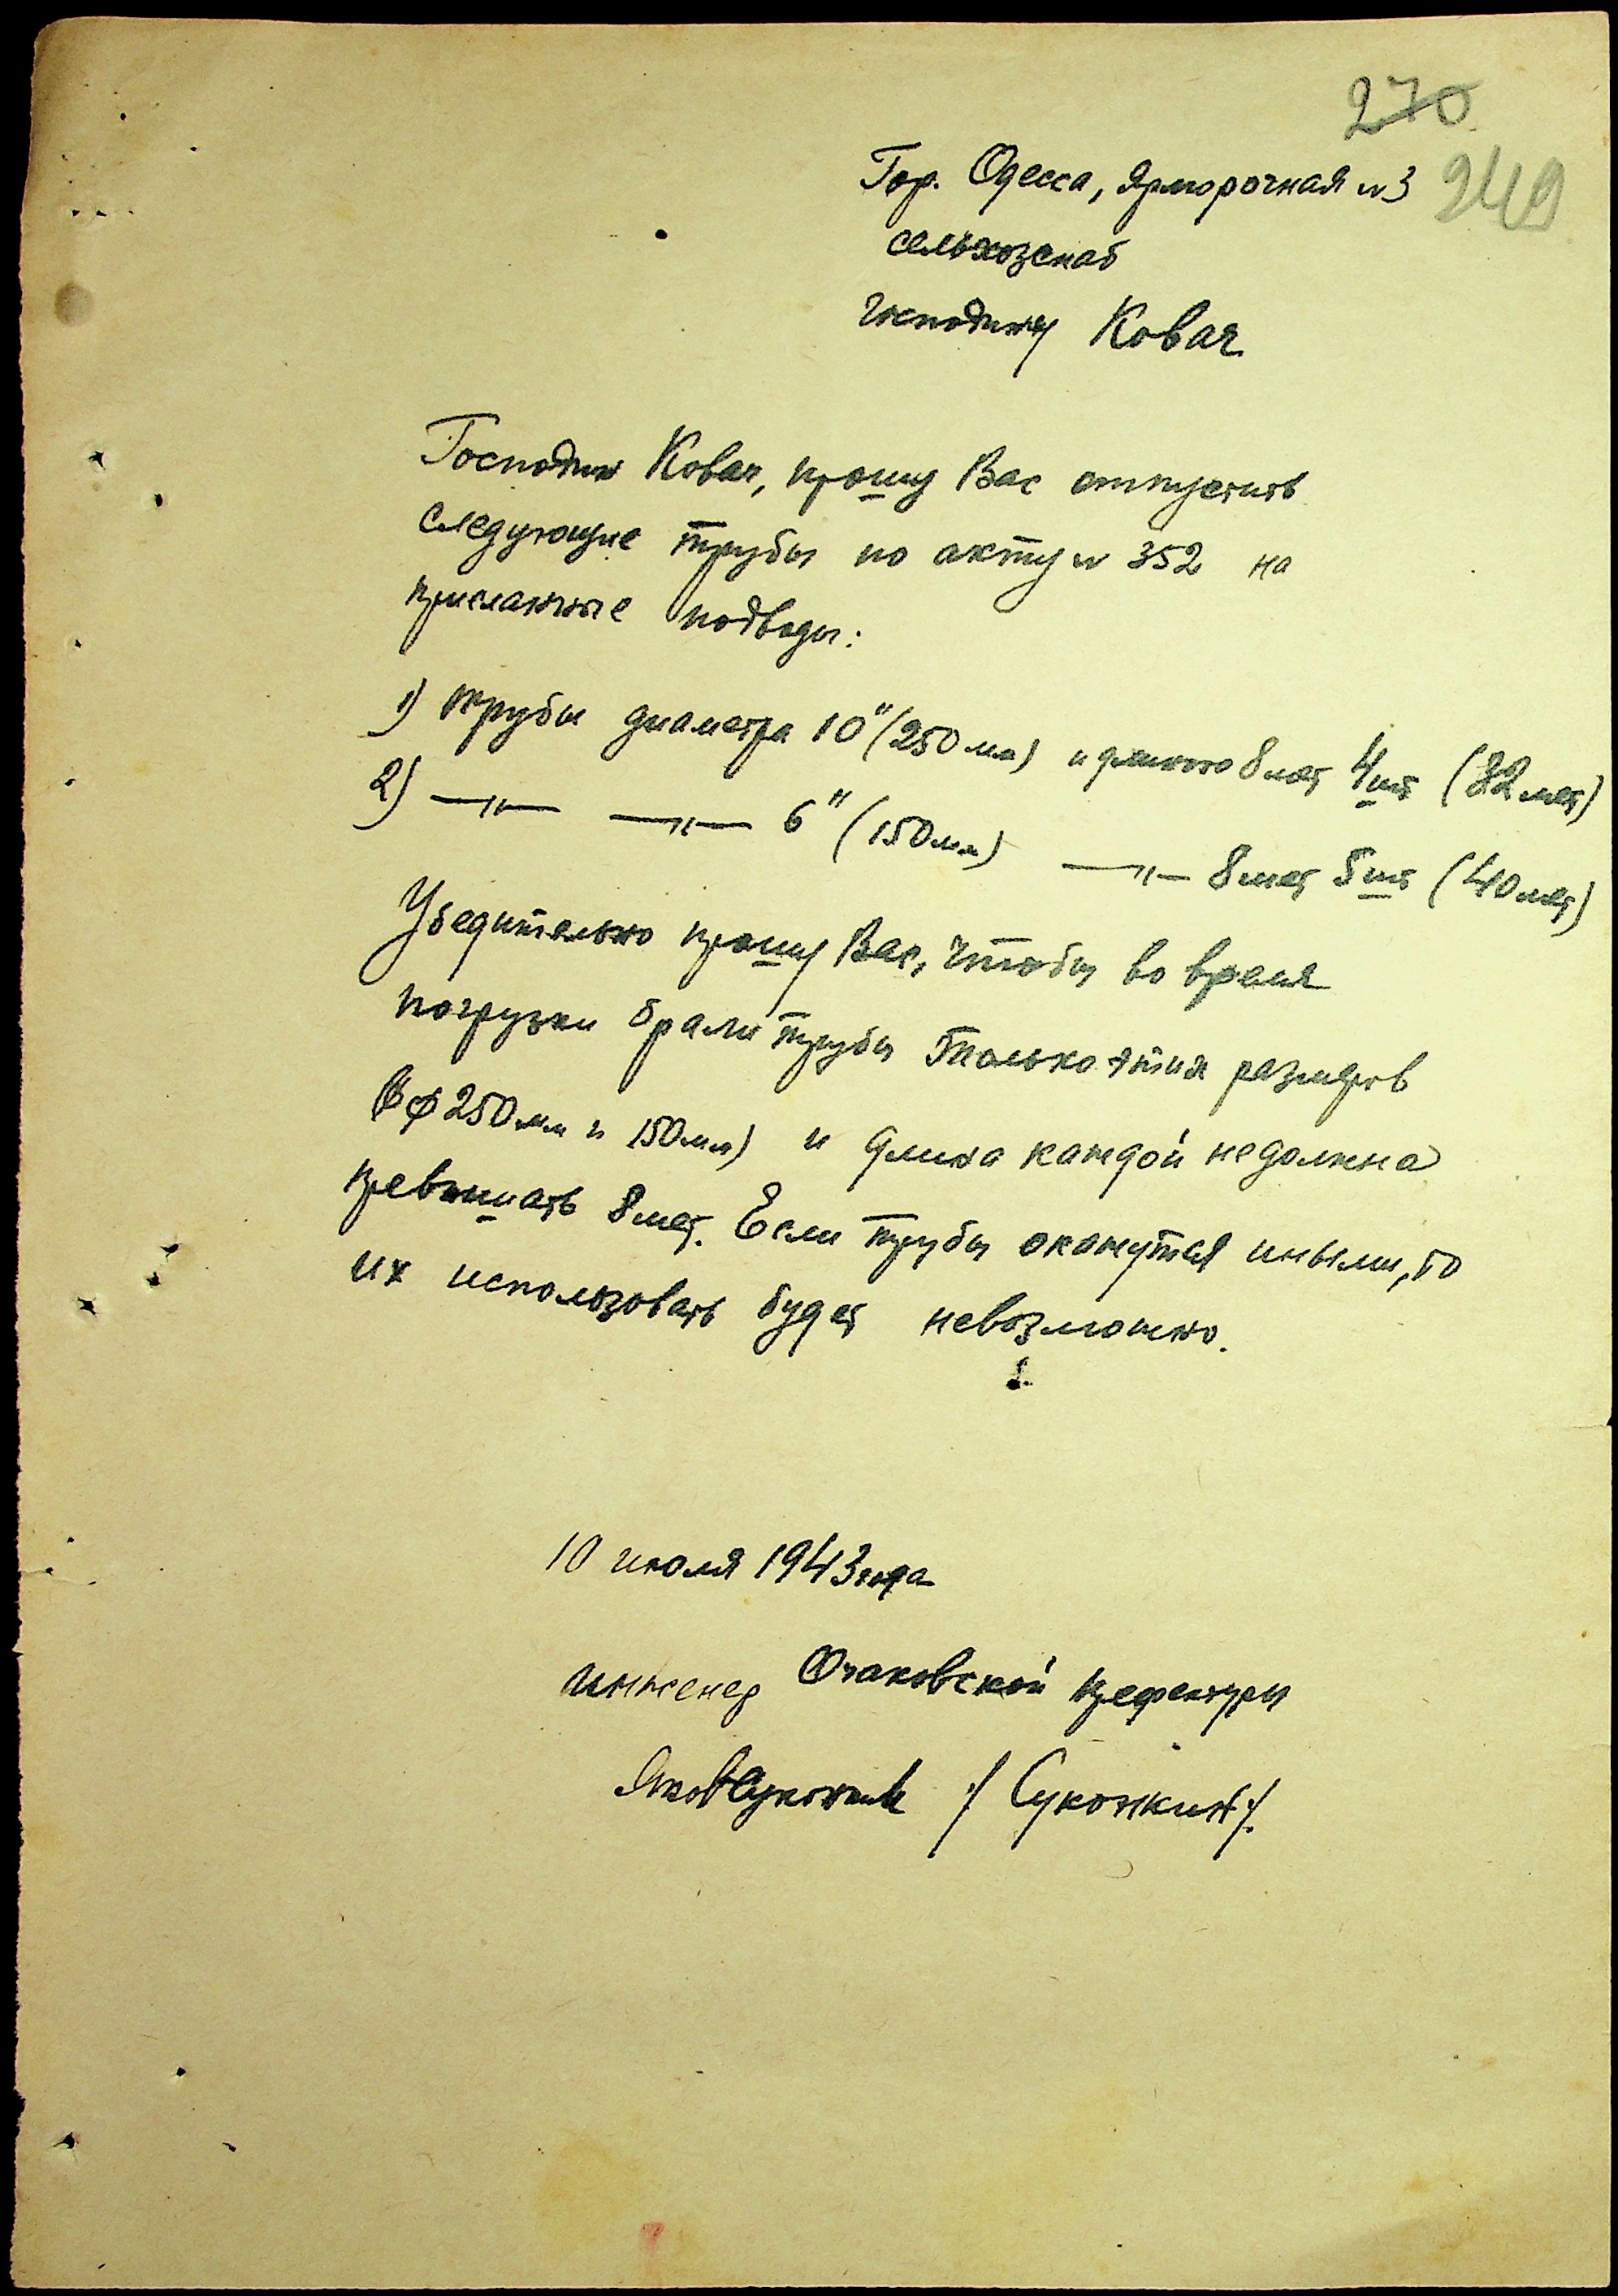 270
249
Гор. Одесса, Ярморочная № 3
сельхозснаб
господину Ковач.
Господин Ковач, прошу Вас отпустить
следующие трубы по акту № 352 на
присланные подводы:
1) трубы диаметра 10" (250 мм) и длиною 8 мет 4 шт (32 мет)
2) —〃— —〃— 6" (150 мм) —〃— 8 мет 5 шт (40 мет)
Убедительно прошу Вас, чтобы во время
погрузки брали трубы только этих размеров
(ф 250 мм и 150 мм) и длина каждой не должна
превышать 8 мет. Если трубы окажутся иными, то
их использовать будет невозможно.
10 июля 1943 года
инженер Очаковской префектуры
/ Суконкин /.